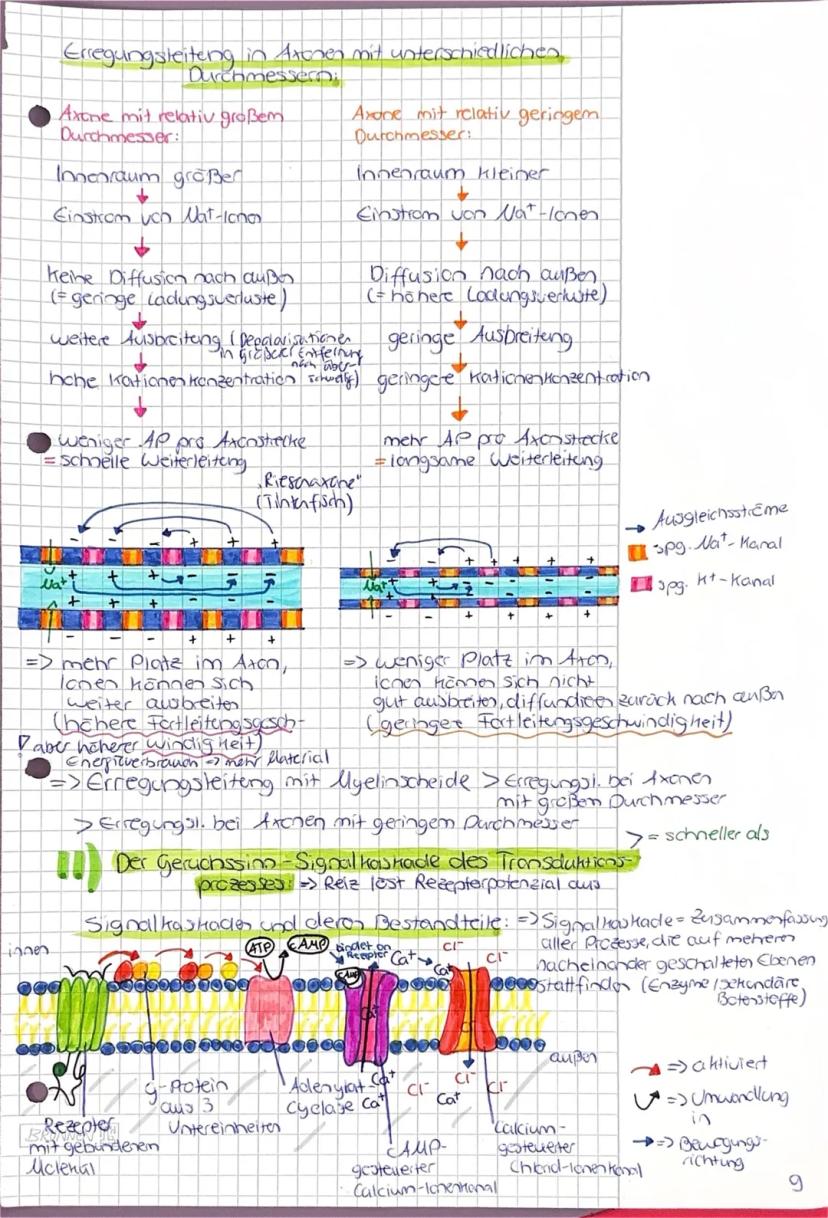 Erregungsleitung in Axonen mit unterschiedlichen
Durchmessern:
Axone mit relativ großem
Durchmesser:
Innenraum größer
Einstrom von Na⁺-Ionen
keine Diffusion nach außen
(= geringe Ladungsverluste)
weitere Ausbreitung (Depolarisationen
in größerer Entfernung
noch über-
schwellig)
hohe Kationenkonzentration
weniger AP pro Axonstrecke
= schnelle Weiterleitung
"Riesenaxone"
(Tintenfisch)
Axone mit relativ geringem
Durchmesser:
Innenraum kleiner
Einstrom von Na⁺-Ionen
Diffusion nach außen
(= höhere Ladungsverluste)
geringe Ausbreitung
geringere Kationenkonzentration
mehr AP pro Axonstrecke
= langsame Weiterleitung
Na⁺
Na⁺
→ Ausgleichsströme
spg. Na⁺-Kanal
spg. K⁺-Kanal
=> mehr Platz im Axon,
Ionen können sich
weiter ausbreiten
(höhere Fortleitungsgesch-
windigkeit)
aber höherer
Energieverbrauch => mehr Material
=> weniger Platz im Axon,
Ionen können sich nicht
gut ausbreiten, diffundieren zurück nach außen
(geringere Fortleitungsgeschwindigkeit)
=> Erregungsleitung mit Myelinscheide > Erregungsl. bei Axonen
mit großen Durchmesser
> Erregungsl. bei Axonen mit geringem Durchmesser
> = schneller als
11) Der Geruchssinn - Signalkaskade des Transduktions-
prozesses: => Reiz löst Rezeptorpotenzial aus
Signalkaskaden und deren Bestandteile: => Signalkaskade = Zusammenfassung
aller Prozesse, die auf mehreren
nacheinander geschalteten Ebenen
stattfinden (Enzyme/sekundäre
Botenstoffe)
innen
ATP
cAMP
bindet an
Rezeptor
cAMP
Ca⁺ →
Ca⁺
Cl⁻
Cl⁻
Ca⁺
Cl⁻
außen
Ca⁺
Ca⁺
Cl⁻
Ca⁺
Cl⁻
Cl⁻
Rezeptor
mit gebundenem
Molekül
G-Protein
aus 3
Untereinheiten
Adenylat-
cyclase
cAMP-
gesteuerter
Calcium-Ionenkanal
Calcium-
gesteuerter
Chlorid-Ionenkanal
=> aktiviert
=> Umwandlung
in
→ => Bewegungs-
richtung
BRUNNEN
9